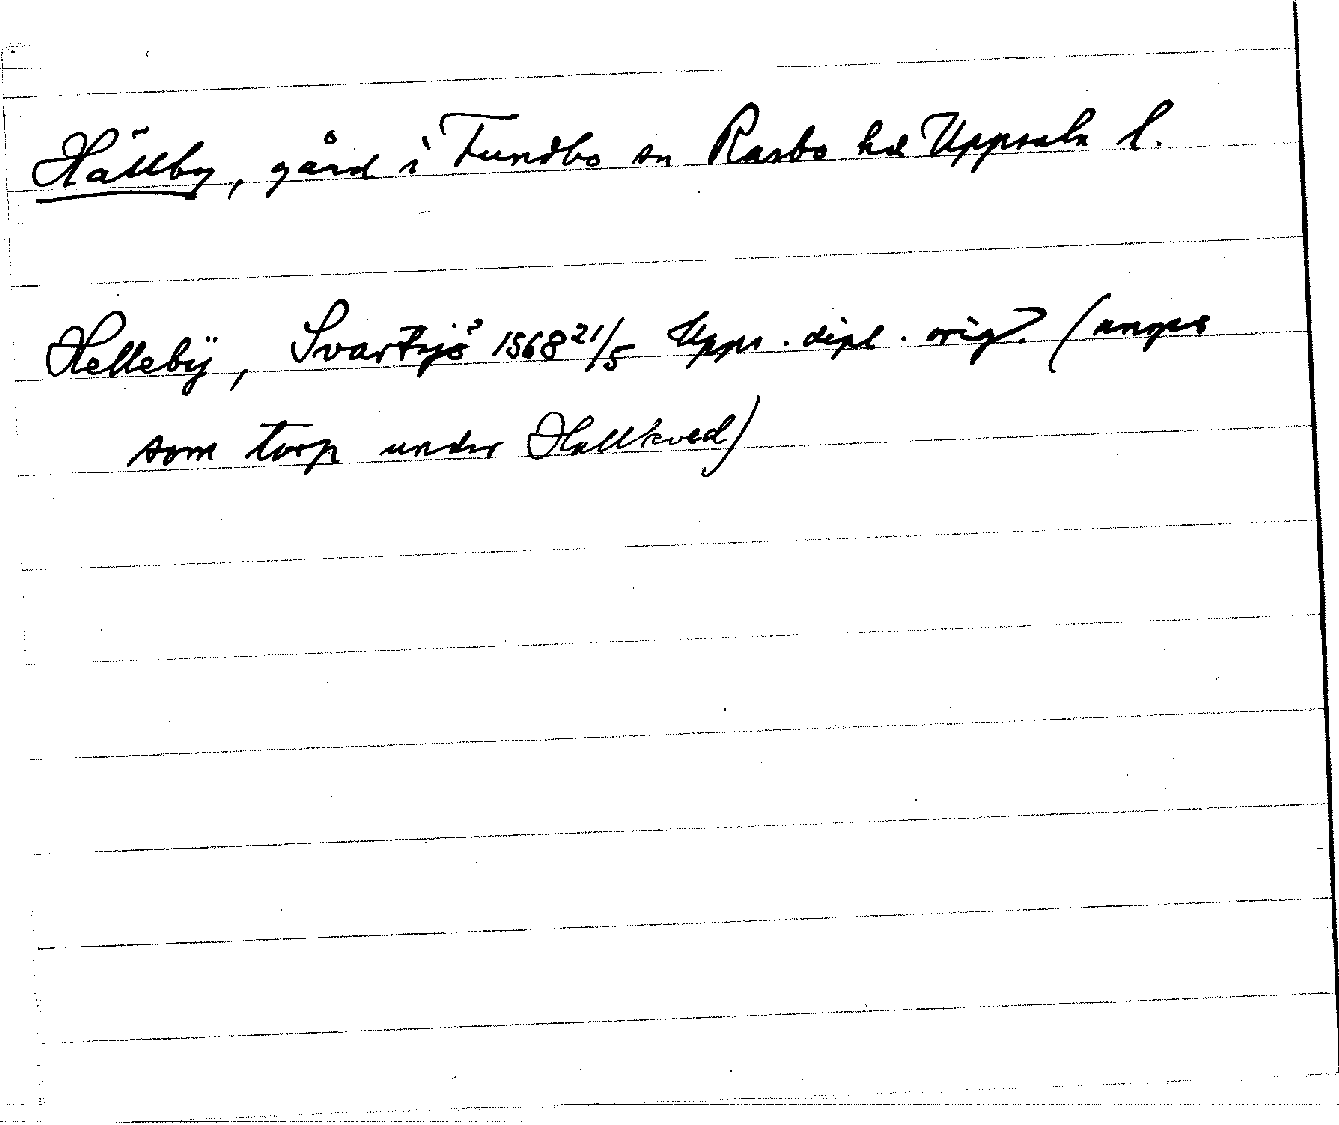 Hällby, gård i Funbo sn Rasbo hd Uppsala l.
Hellebÿ, Svartsjö 1568 21/5 Upps. dipl. orig. (anges
som torp under Hallkved)